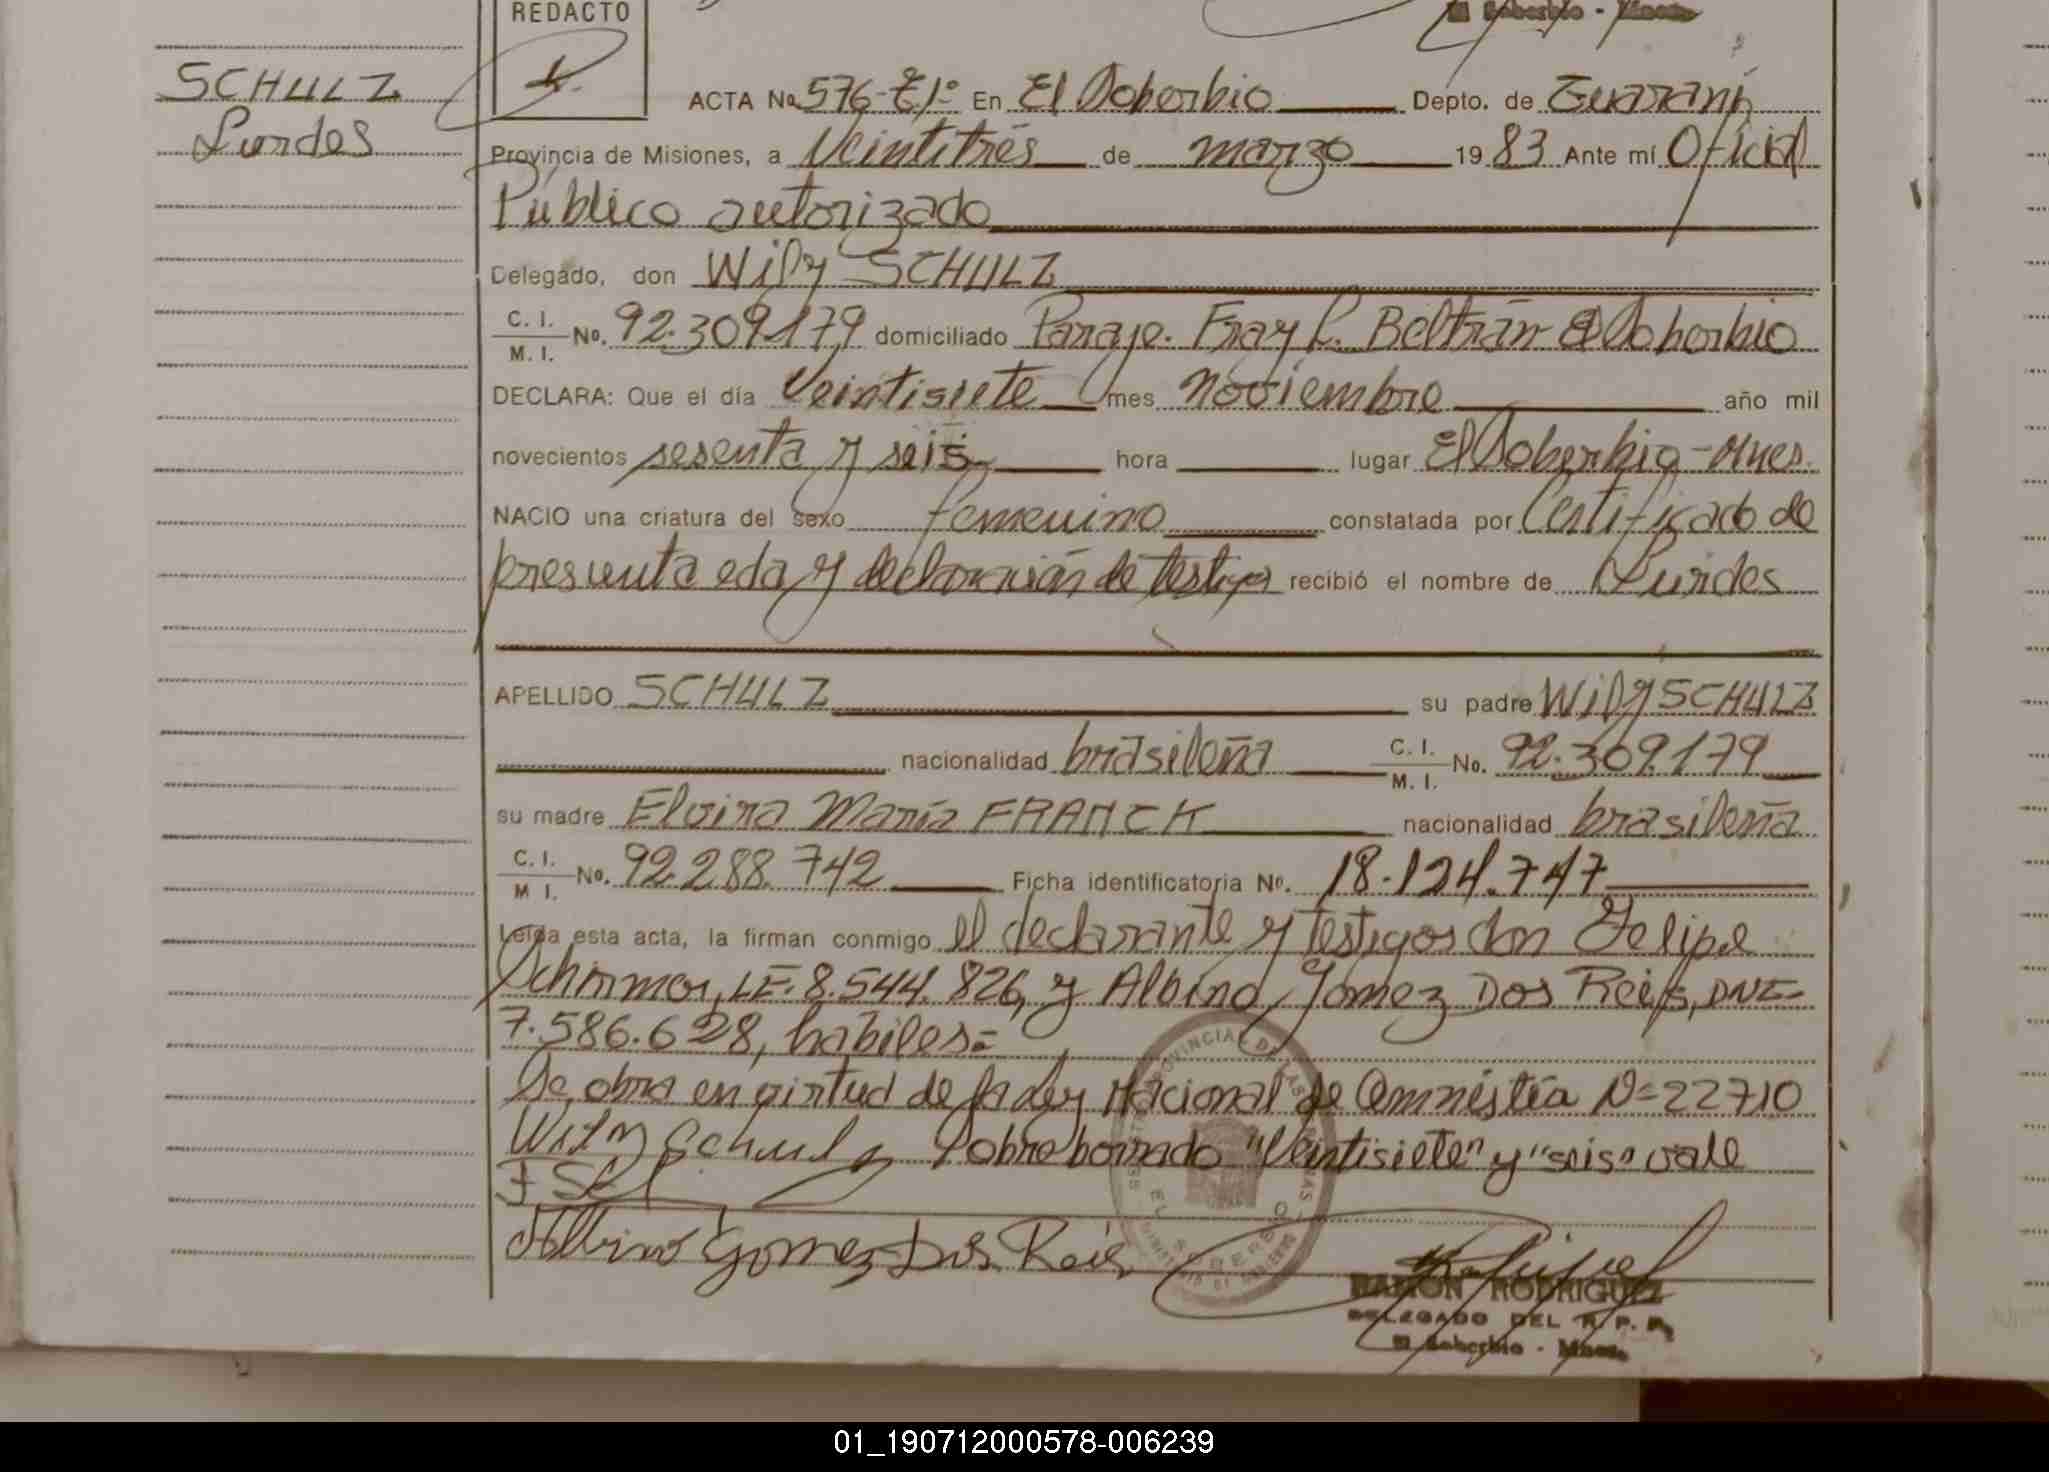 REDACTO
El Soberbio - Mnes
SCHULZ
Lurdes
ACTA No. 576-T/1º En El Soberbio Depto. de Guaraní
Provincia de Misiones, a Veintitrés de marzo 19 83 Ante mí Oficial
Público autorizado
Delegado, don Wily SCHULZ
C. I.
M. I. No. 92.309.179 domiciliado Paraje. Fray L. Beltrán El Soberbio
DECLARA: Que el día Veintisiete mes noviembre año mil
novecientos sesenta y seis hora lugar El Soberbio-Mnes.
NACIO una criatura del sexo femenino constatada por Certificado de
presunta eda y declaración de testigos recibió el nombre de Lurdes
APELLIDO SCHULZ su padre Wily SCHULZ
nacionalidad brasileña C. I. M. I. No. 92.309.179
su madre Elvira María FRANCK nacionalidad brasileña
C. I.
M I. No. 92.288.742 Ficha identificatoria No. 18.124.747
Leída esta acta, la firman conmigo el declarante y testigos don Felipe
Schimmer, LE. 8.544.826, y Albino Gomez Dos Reis, DNI-
7.586.628, habiles=
Se obra en virtud de la Ley Nacional de Amnistía N=22710
Wily Schulz Sobreborrado "Veintisiete" y "seis" vale
Albino Gomez Dos Reis
RAMON RODRIGUEZ
DELEGADO DEL R. P. P.
El Soberbio - Mnes
01_190712000578-006239